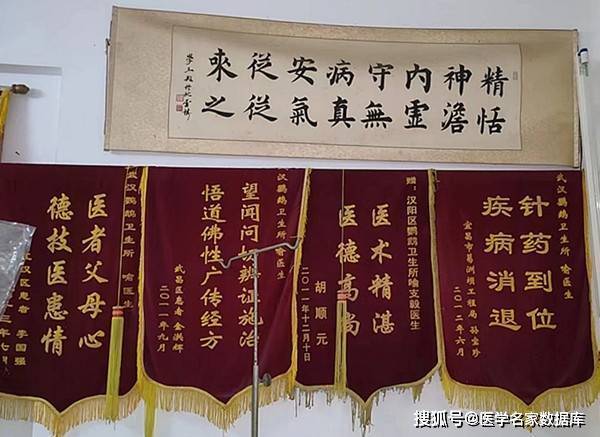 精神內守病安從來
恬澹虛無真氣從之
武汉鹦鹉卫生所 喻医生
针药到位
疾病消退
宜昌市葛洲坝工程局 孙宝珍
二〇一二年六月
赠：汉阳区鹦鹉卫生所喻支毅医生
医术精湛
医德高尚
胡顺元
二〇一一年十二月十日
喻医生
望闻问切辨证施治
悟道佛性广传经方
武昌区患者 金洪辉
二〇一一年九月
武汉鹦鹉卫生所 喻医生
医者父母心
德技医患情
汉区患者 李国强
三年七月
搜狐号@医学名家数据库